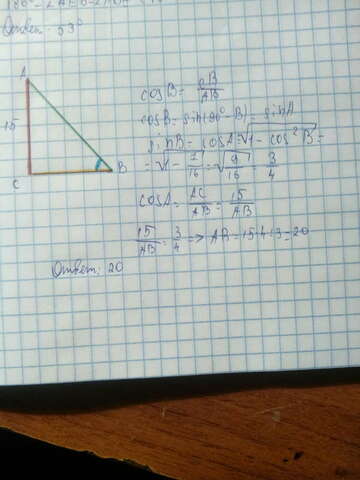 Ответ: 53°
A
15
C
B
cosB = CB/AB
cosB = sin(90°-B) = sinA
sinB = cosA = √1 - cos²B =
= √1 - 7/16 = √9/16 = 3/4
cosA = AC/AB = 15/AB
15/AB = 3/4 => AB = 15·4:3 = 20
Ответ: 20